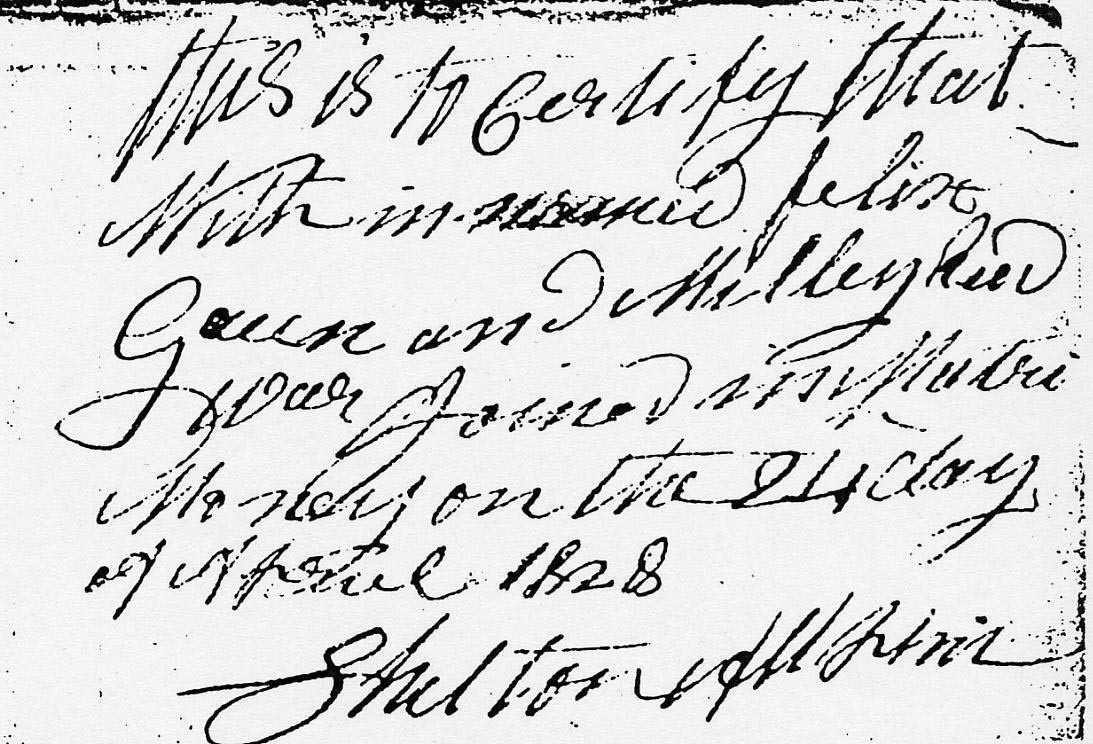 This is to Certify that
With in named felix
Green and Milley
war Joined in Matri
Money on the 24 day
of Aprile 1828
Shelton